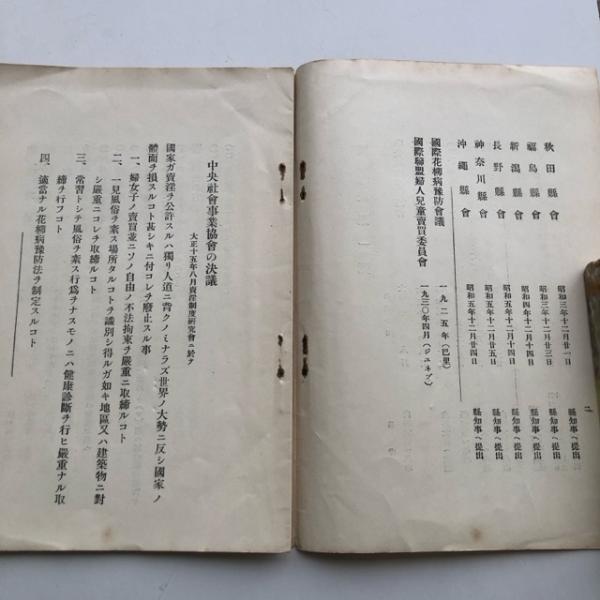 秋田縣會 昭和三年十二月廿一日 縣知事ヘ提出
福島縣會 昭和三年十二月廿三日 縣知事ヘ提出
新潟縣會 昭和四年十二月十四日 縣知事ヘ提出
長野縣會 昭和五年十二月十四日 縣知事ヘ提出
神奈川縣會 昭和五年十二月廿五日 縣知事ヘ提出
沖繩縣會 昭和五年十二月廿四日 縣知事ヘ提出
國際花柳病豫防會議 一九二五年(巴里)
國際聯盟婦人兒童賣買委員會 一九三〇年四月(ジユネブ)
二
中央社會事業協會の決議
大正十五年八月賣淫制度研究會ニ於テ
國家ガ賣淫ヲ公許スルハ獨リ人道ニ背クノミナラズ世界ノ大勢ニ反シ國家ノ
體面ヲ損スルコト甚シキニ付コレヲ廢止スル事
一、婦女子ノ賣買並ニソノ自由ノ不法拘束ヲ嚴重ニ取締ルコト
二、一見風俗ヲ紊ス場所タルコトヲ識別シ得ルガ如キ地區又ハ建築物ニ對
シ嚴重ニコレヲ取締ルコト
三、常習トシテ風俗ヲ紊ス行爲ヲナスモノニハ健康診斷ヲ行ヒ嚴重ナル取
締ヲ行フコト
四、適當ナル花柳病豫防法ヲ制定スルコト